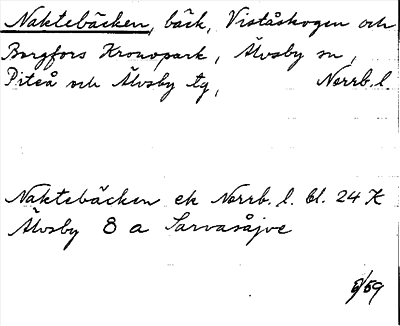 Naktebäcken, bäck, Viståskogen och
Borgfors Kronopark, Älvsby sn,
Piteå och Älvsby tg, Norrb. l.
Naktebäcken ek Norrb. l. bl. 24 K
Älvsby 8 a Sarvasåjve
5/59